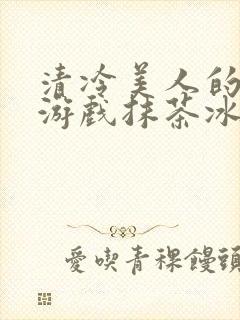 清冷美人的
游戏抹茶冰
愛喫青稞饅頭